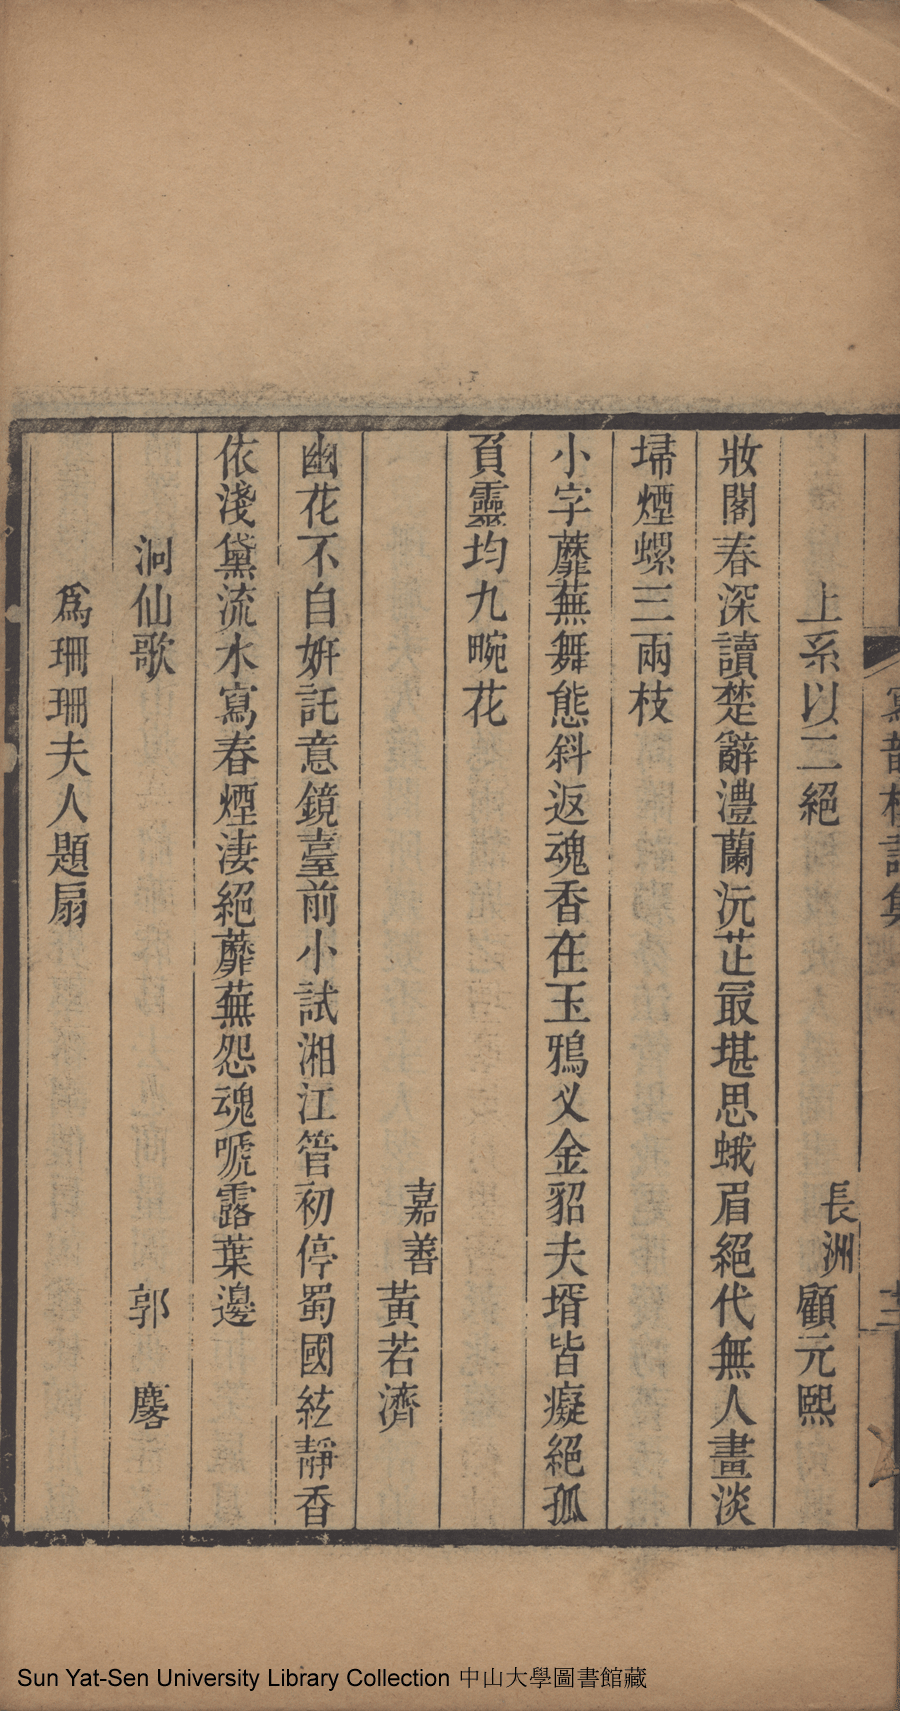 寫韻樓詩集
上系以二絕　長洲顧元熙
妝閣春深讀楚辭澧蘭沅芷最堪思蛾眉絕代無人畫淡
埽煙螺三兩枝
小字蘼蕪舞態斜返魂香在玉鴉义金貂夫壻皆癡絕孤
負靈均九畹花
嘉善黃若濟
幽花不自姸託意鏡臺前小試湘江管初停蜀國絃靜香
依淺黛流水寫春煙淒絕蘼蕪怨魂嗁露葉邊
洞仙歌　郭麐
爲珊珊夫人題扇
Sun Yat-Sen University Library Collection 中山大學圖書館藏